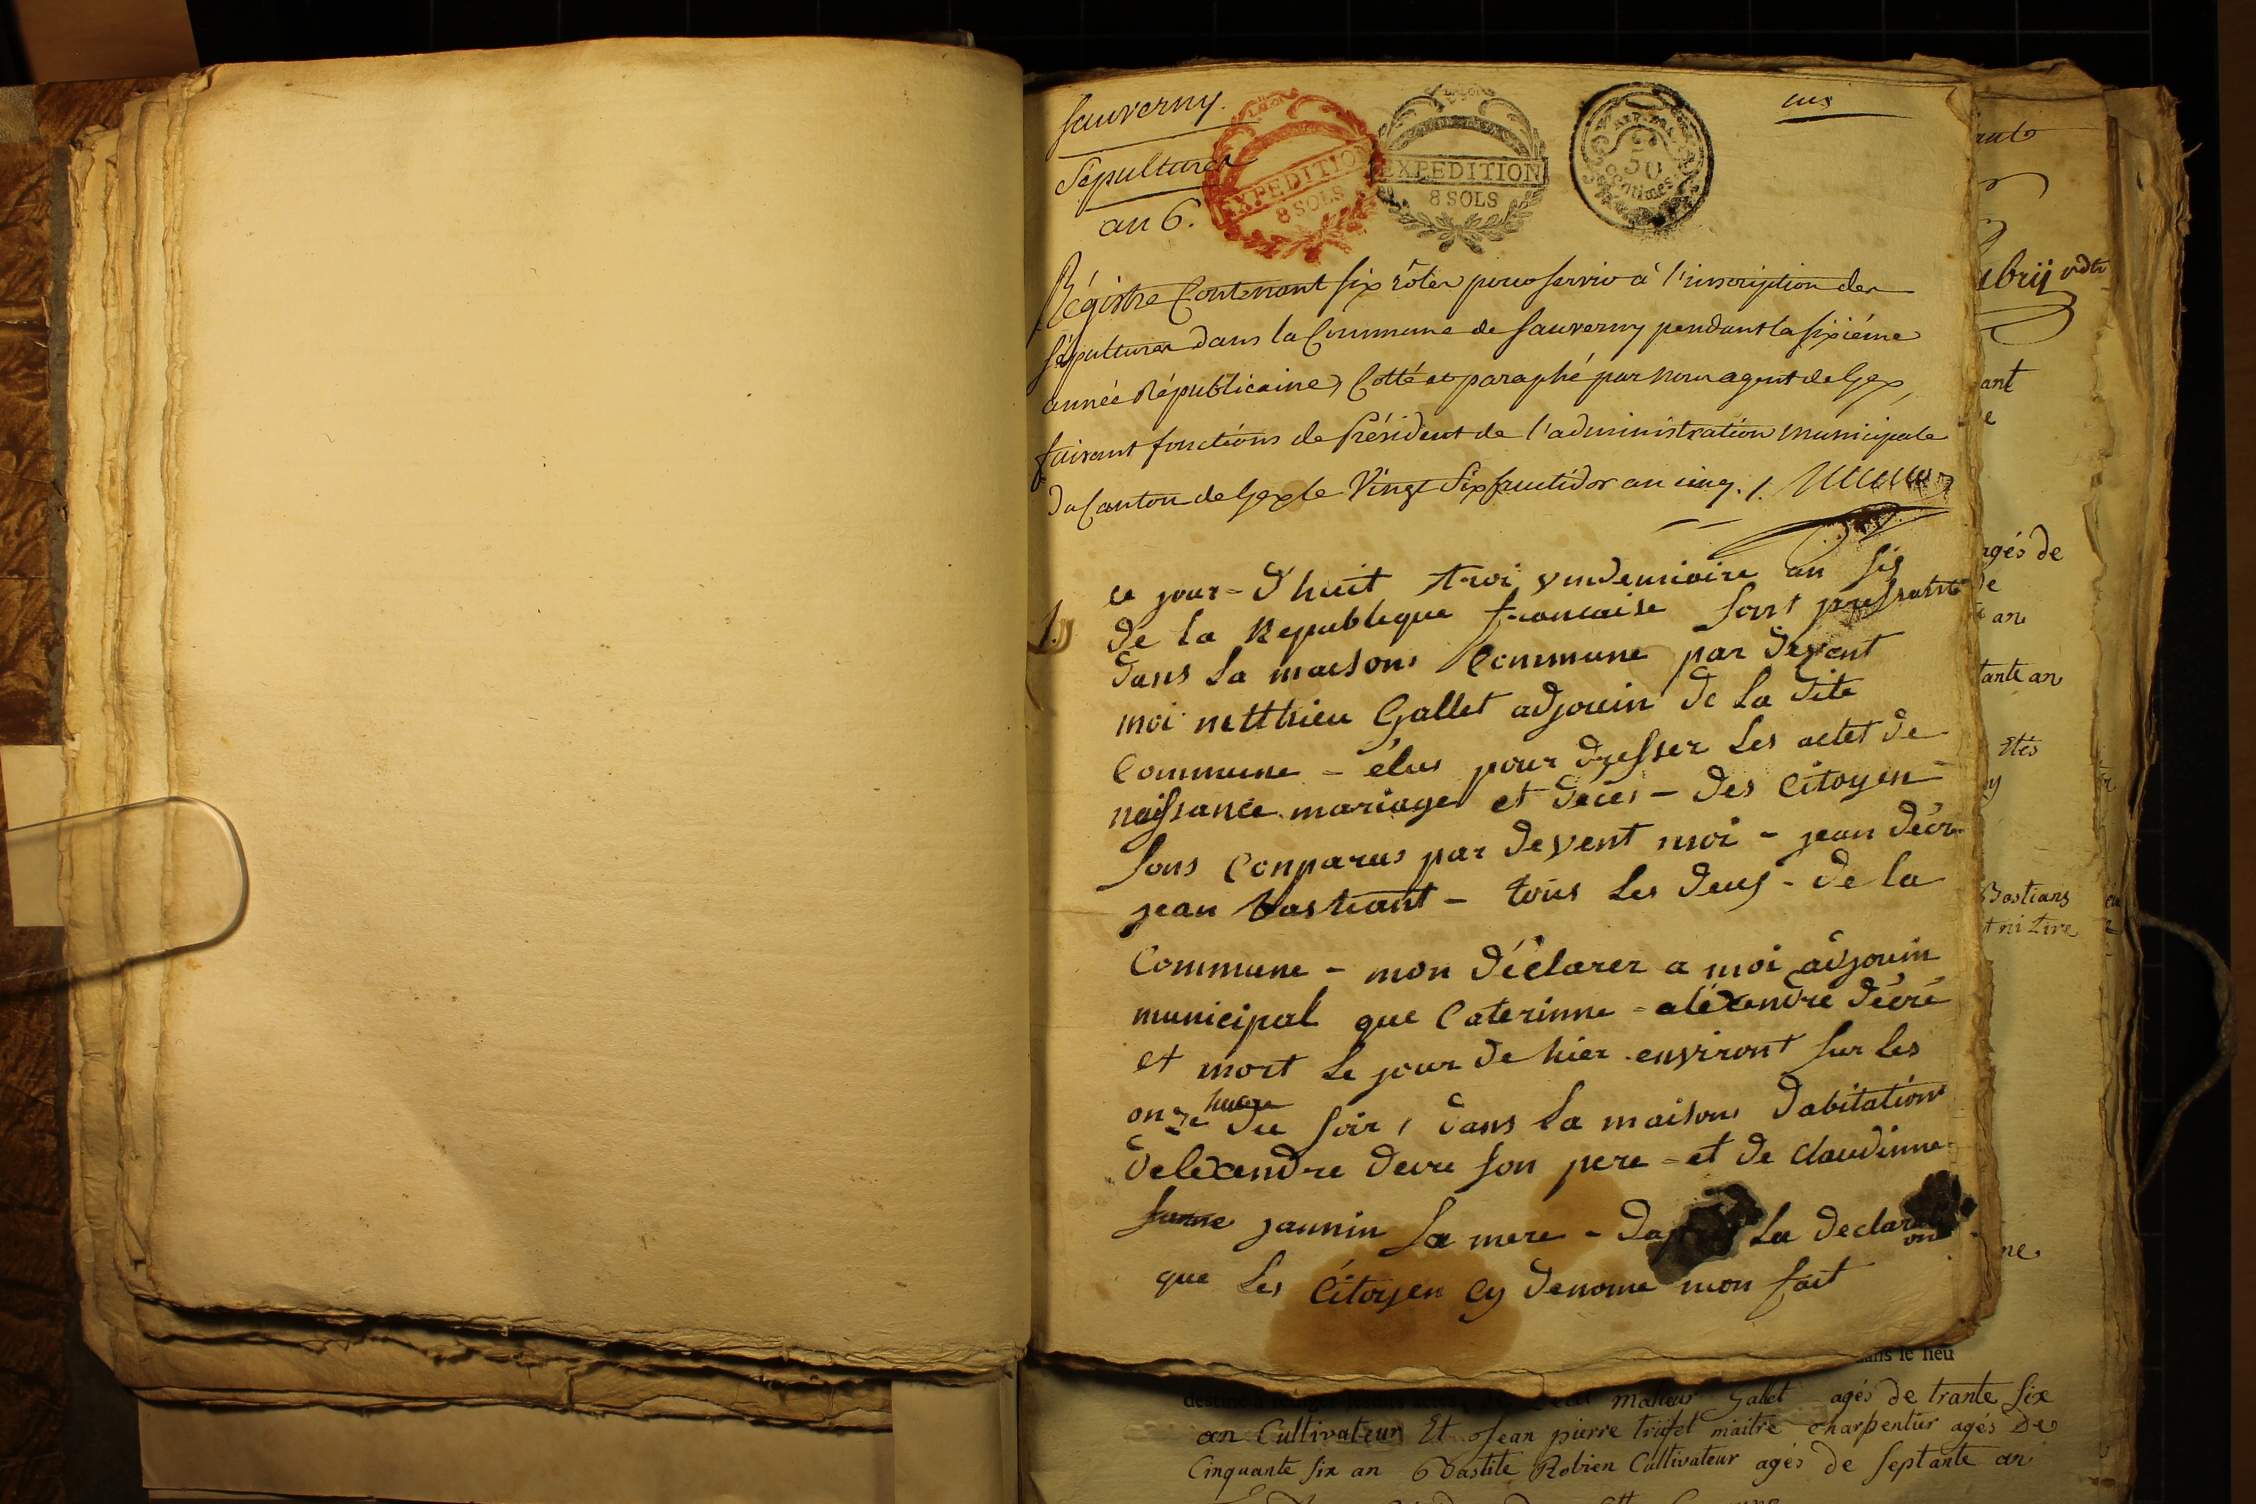 Sauverny.
Sépultures
an 6.
EXPEDITION
8 SOLS
EXPEDITION
8 SOLS
50
centimes
Régistre Contenant six rôles pour servir à l'inscription des
sépultures dans la Commune de Sauverny pendant la sixiéme
année Républicaine, Cotté et paraphé par nous agent de Gex,
faisant fonctions de Président de l'administration municipale
du Canton de Gex le Vingt Six fructidor an cinq. /.
1.
ce jour = d'huit troi vindemiaire an sis
de la Republeque francaise sont
dans la maison Commune par devent
moi metthieu Gallet adjouin de la dite
Commune = élus pour dresser les actet de
naissance mariage et déces - des Citoyen
sons Conparus par devent moi - jean décr
jean bastiant - tous les deus - de la
Commune - mon déclarer a moi adjouin
municipal que Caterinne = aléxendre décré
et mort le jour de hier environt sur les
onze heure du soir, dans la maison dabitation
deléxendre decre son pere = et de claudinne
jannin sa mere - la declaration
que les Citoyen cy denome mon fait
ant
agés de
de
an
tante an
Bastians
ne
dans le lieu
Gallet agés de trante six
an Cultivateur Et Jean pierre maitre charpentier agés De
Cinquante six an Robien Cultivateur agés de septante an